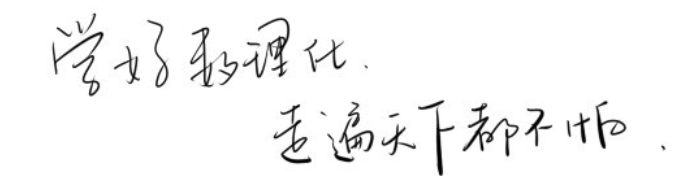 学好数理化.
走遍天下都不怕.